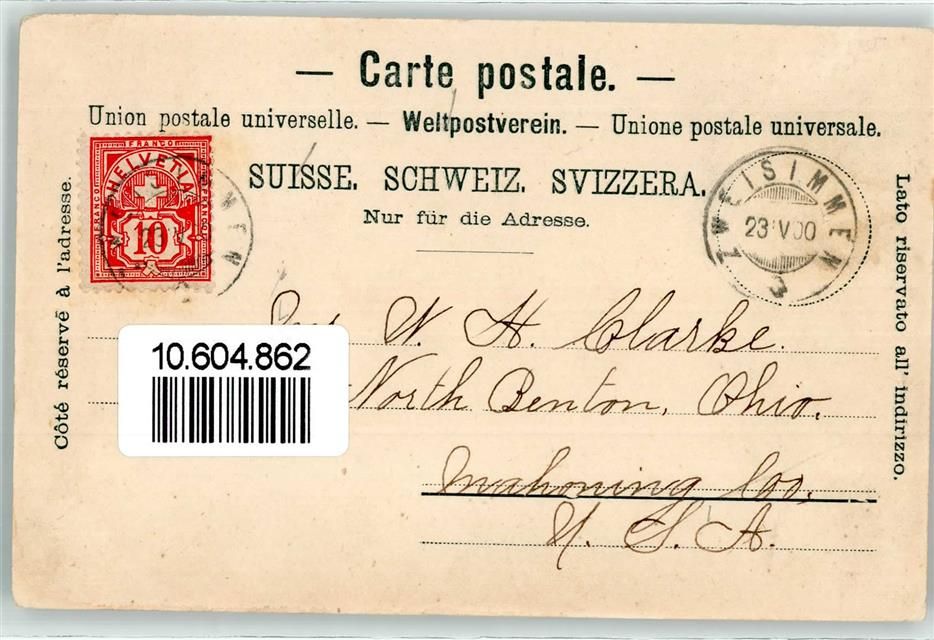 — Carte postale. —
Union postale universelle. — Weltpostverein. — Unione postale universale.
SUISSE. SCHWEIZ. SVIZZERA.
Nur für die Adresse.
Côté réservé à l'adresse.
Lato riservato all' indirizzo.
FRANCO
HELVETIA
FRANCO
FRANCO
10
MEN
ZWEISIMMEN
23 V 00
W. H. Clarke.
10.604.862
North Benton, Ohio.
Mahoning Co.,
U. S. A.